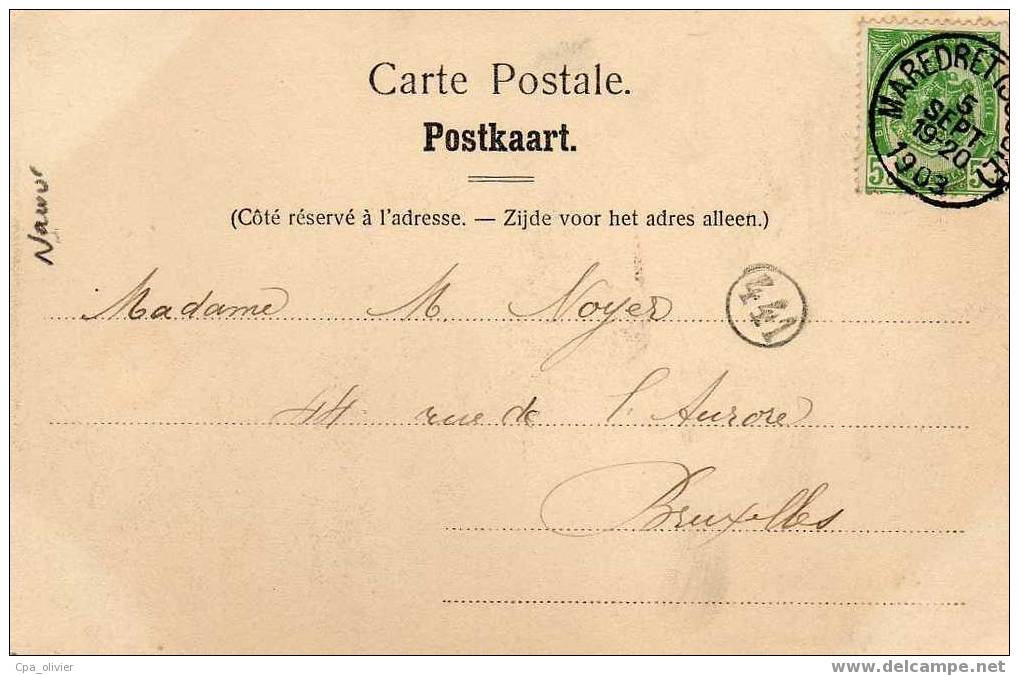 Carte Postale.
Postkaart.
(Côté réservé à l'adresse. — Zijde voor het adres alleen.)
Namur
MAREDRET
5
SEPT
19-20
1903
5 5
Madame M. Noyer
441
44 rue de l'Aurore
Bruxelles
Cpa_olivier
http://www.delcampe.net